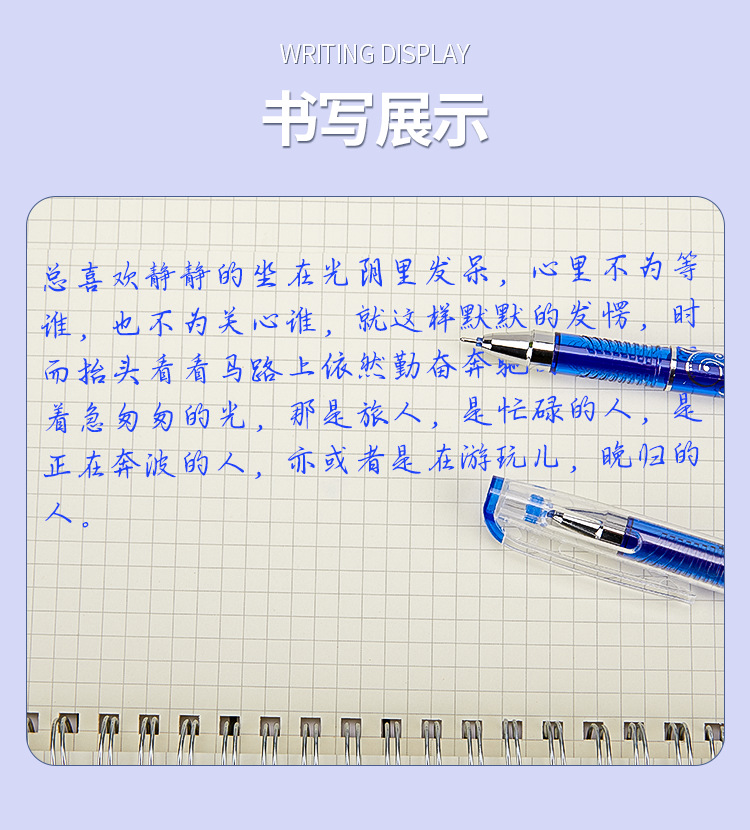 WRITING DISPLAY
书写展示
总喜欢静静的坐在光阴里发呆，心里不为等
谁，也不为关心谁，就这样默默的发愣，时
而抬头看看马路上依然勤奋奔驰
着急匆匆的光，那是旅人，是忙碌的人，是
正在奔波的人，亦或者是在游玩儿，晚归的
人。